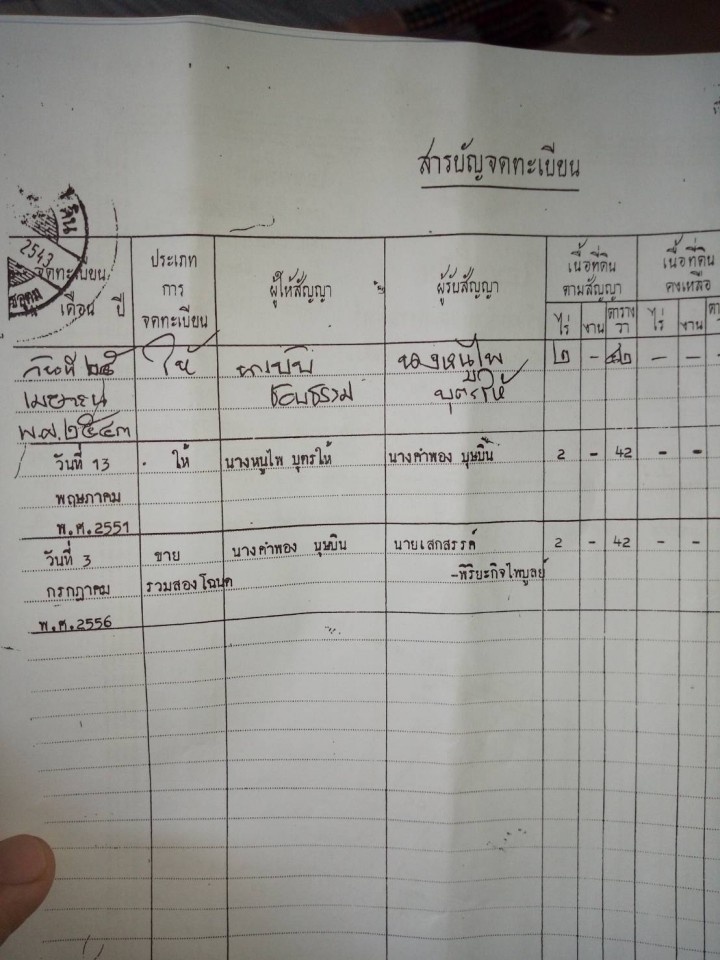 สารบัญจดทะเบียน
จดทะเบียน
เดือน ปี
ประเภท
การ
จดทะเบียน
ผู้ให้สัญญา
ผู้รับสัญญา
เนื้อที่ดิน
ตามสัญญา
ไร่ งาน ตาราง
วา
เนื้อที่ดิน
คงเหลือ
ไร่ งาน
2543
ดิน
วันที่ ๒๕ ให้ ๒ - ๔๒ - - -
เมษายน ชอบธรรม บุตรให้
พ.ศ. ๒๕๔๓
วันที่ 13 ให้ นางหนูไพ บุตรให้ นางคำพอง บุษบิน 2 - 42 - -
พฤษภาคม
พ.ศ.2551
วันที่ 3 ขาย นางคำพอง บุษบิน นายเสกสรรค์ 2 - 42 - -
กรกฎาคม รวมสองโฉนด -พิริยะกิจไพบูลย์
พ.ศ.2556